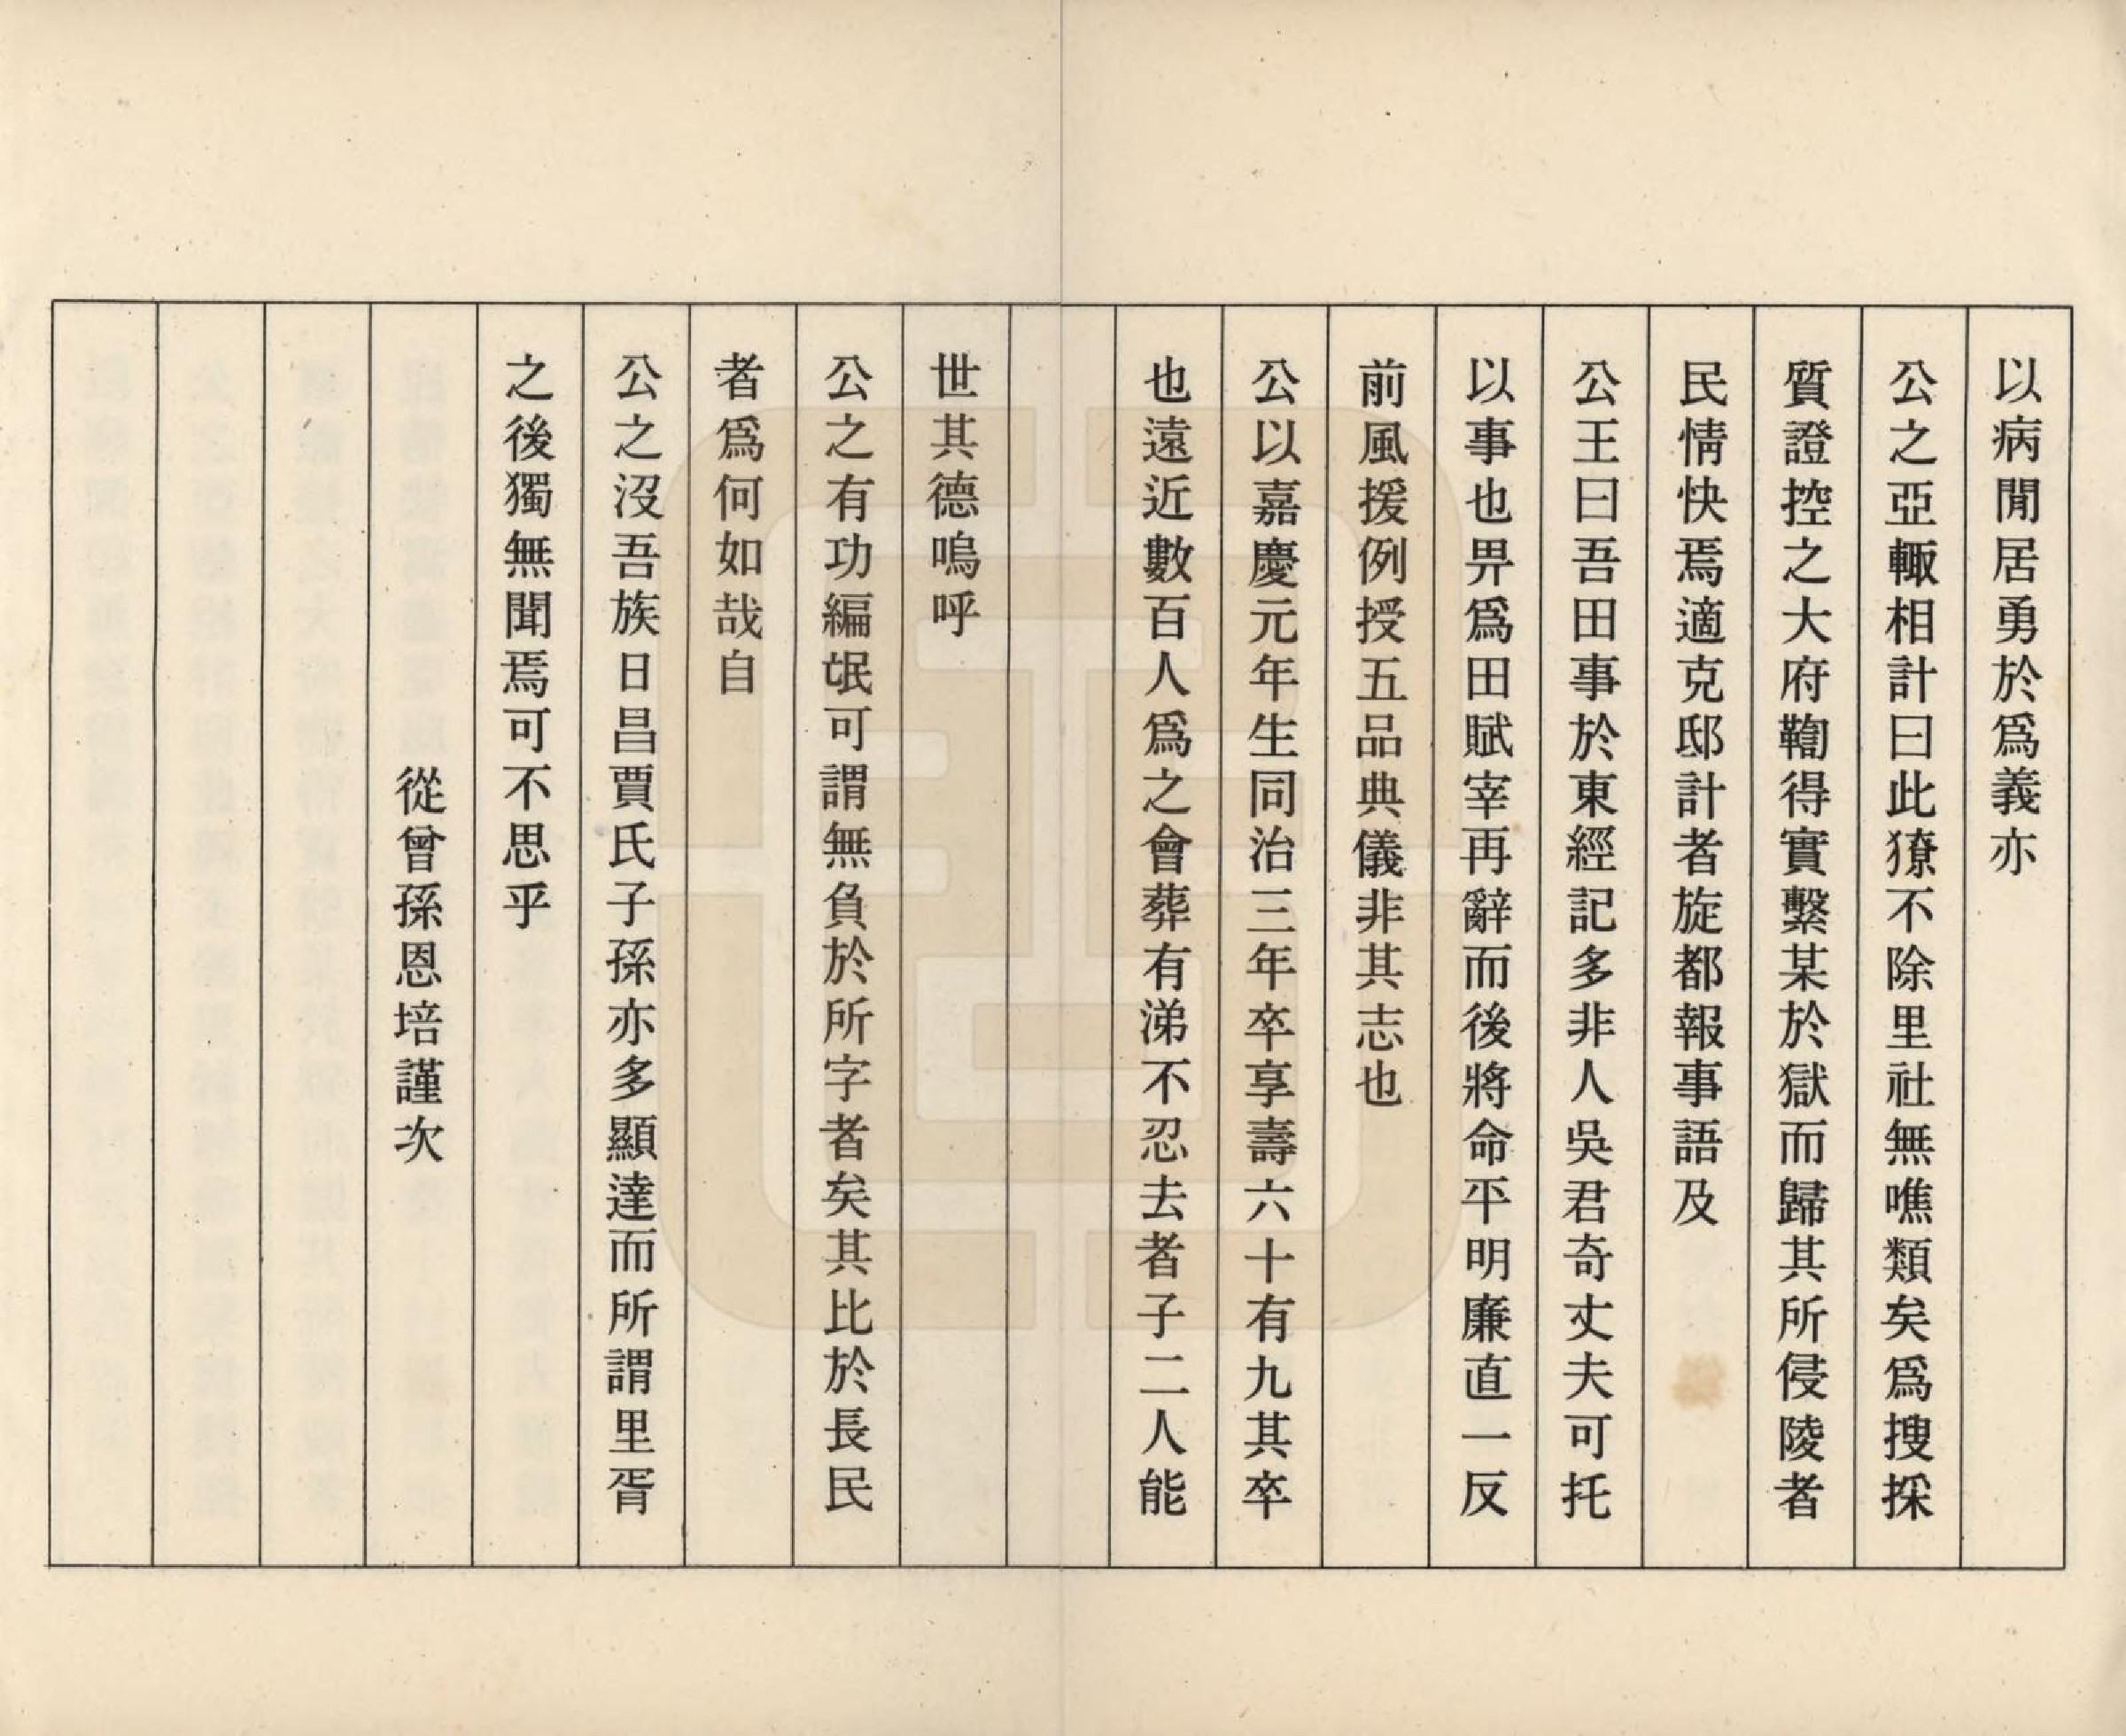 以病閒居勇於爲義亦
公之亞輙相計曰此獠不除里社無噍類矣爲搜採
質證控之大府鞫得實繫某於獄而歸其所侵陵者
民情快焉適克邸計者旋都報事語及
公王曰吾田事於東經記多非人吳君奇丈夫可托
以事也畀爲田賦宰再辭而後將命平明廉直一反
前風援例授五品典儀非其志也
公以嘉慶元年生同治三年卒享壽六十有九其卒
也遠近數百人爲之會葬有涕不忍去者子二人能
世其德嗚呼
公之有功編氓可謂無負於所字者矣其比於長民
者爲何如哉自
公之沒吾族日昌賈氏子孫亦多顯達而所謂里胥
之後獨無聞焉可不思乎
從曾孫恩培謹次